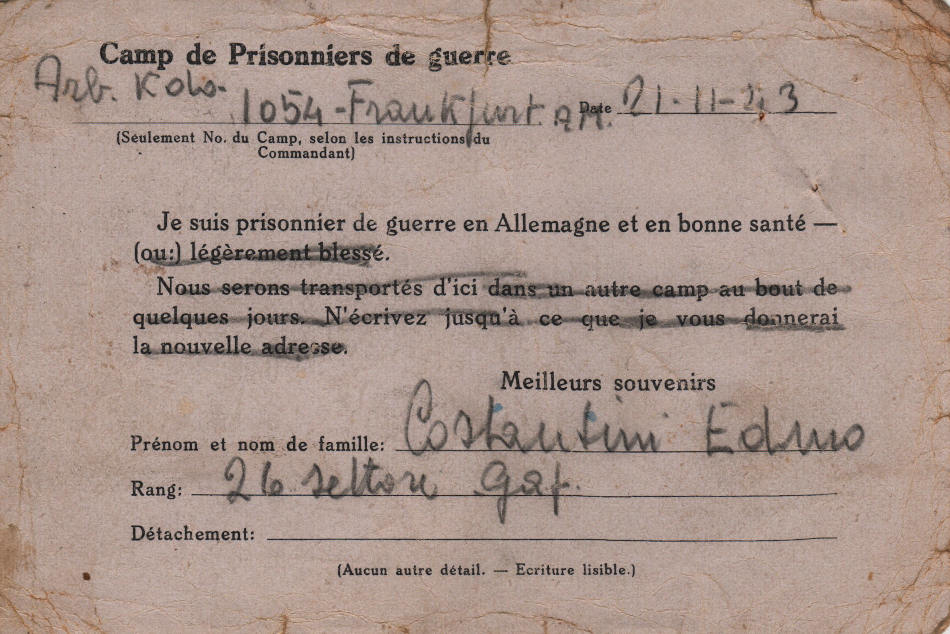 Camp de Prisonniers de guerre
Arb. Kdo. 1054-Frankfurt a.M. Date 21-11-43
(Seulement No. du Camp, selon les instructions du
Commandant)
Je suis prisonnier de guerre en Allemagne et en bonne santé —
(ou:) légèrement blessé.
Nous serons transportés d'ici dans un autre camp au bout de
quelques jours. N'écrivez jusqu'à ce que je vous donnerai
la nouvelle adresse.
Meilleurs souvenirs
Prénom et nom de famille: Costantini Edmo
Rang: 26 settore Gaf.
Détachement:
(Aucun autre détail. — Ecriture lisible.)